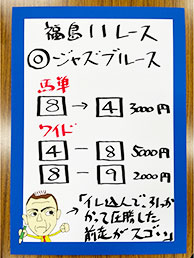 福島11レース
◎ジャズブルース
馬単
8→4 3000円
ワイド
4-8 5000円
8-9 2000円
「イレ込んで、引っか
かって圧勝した
前走がスゴい」